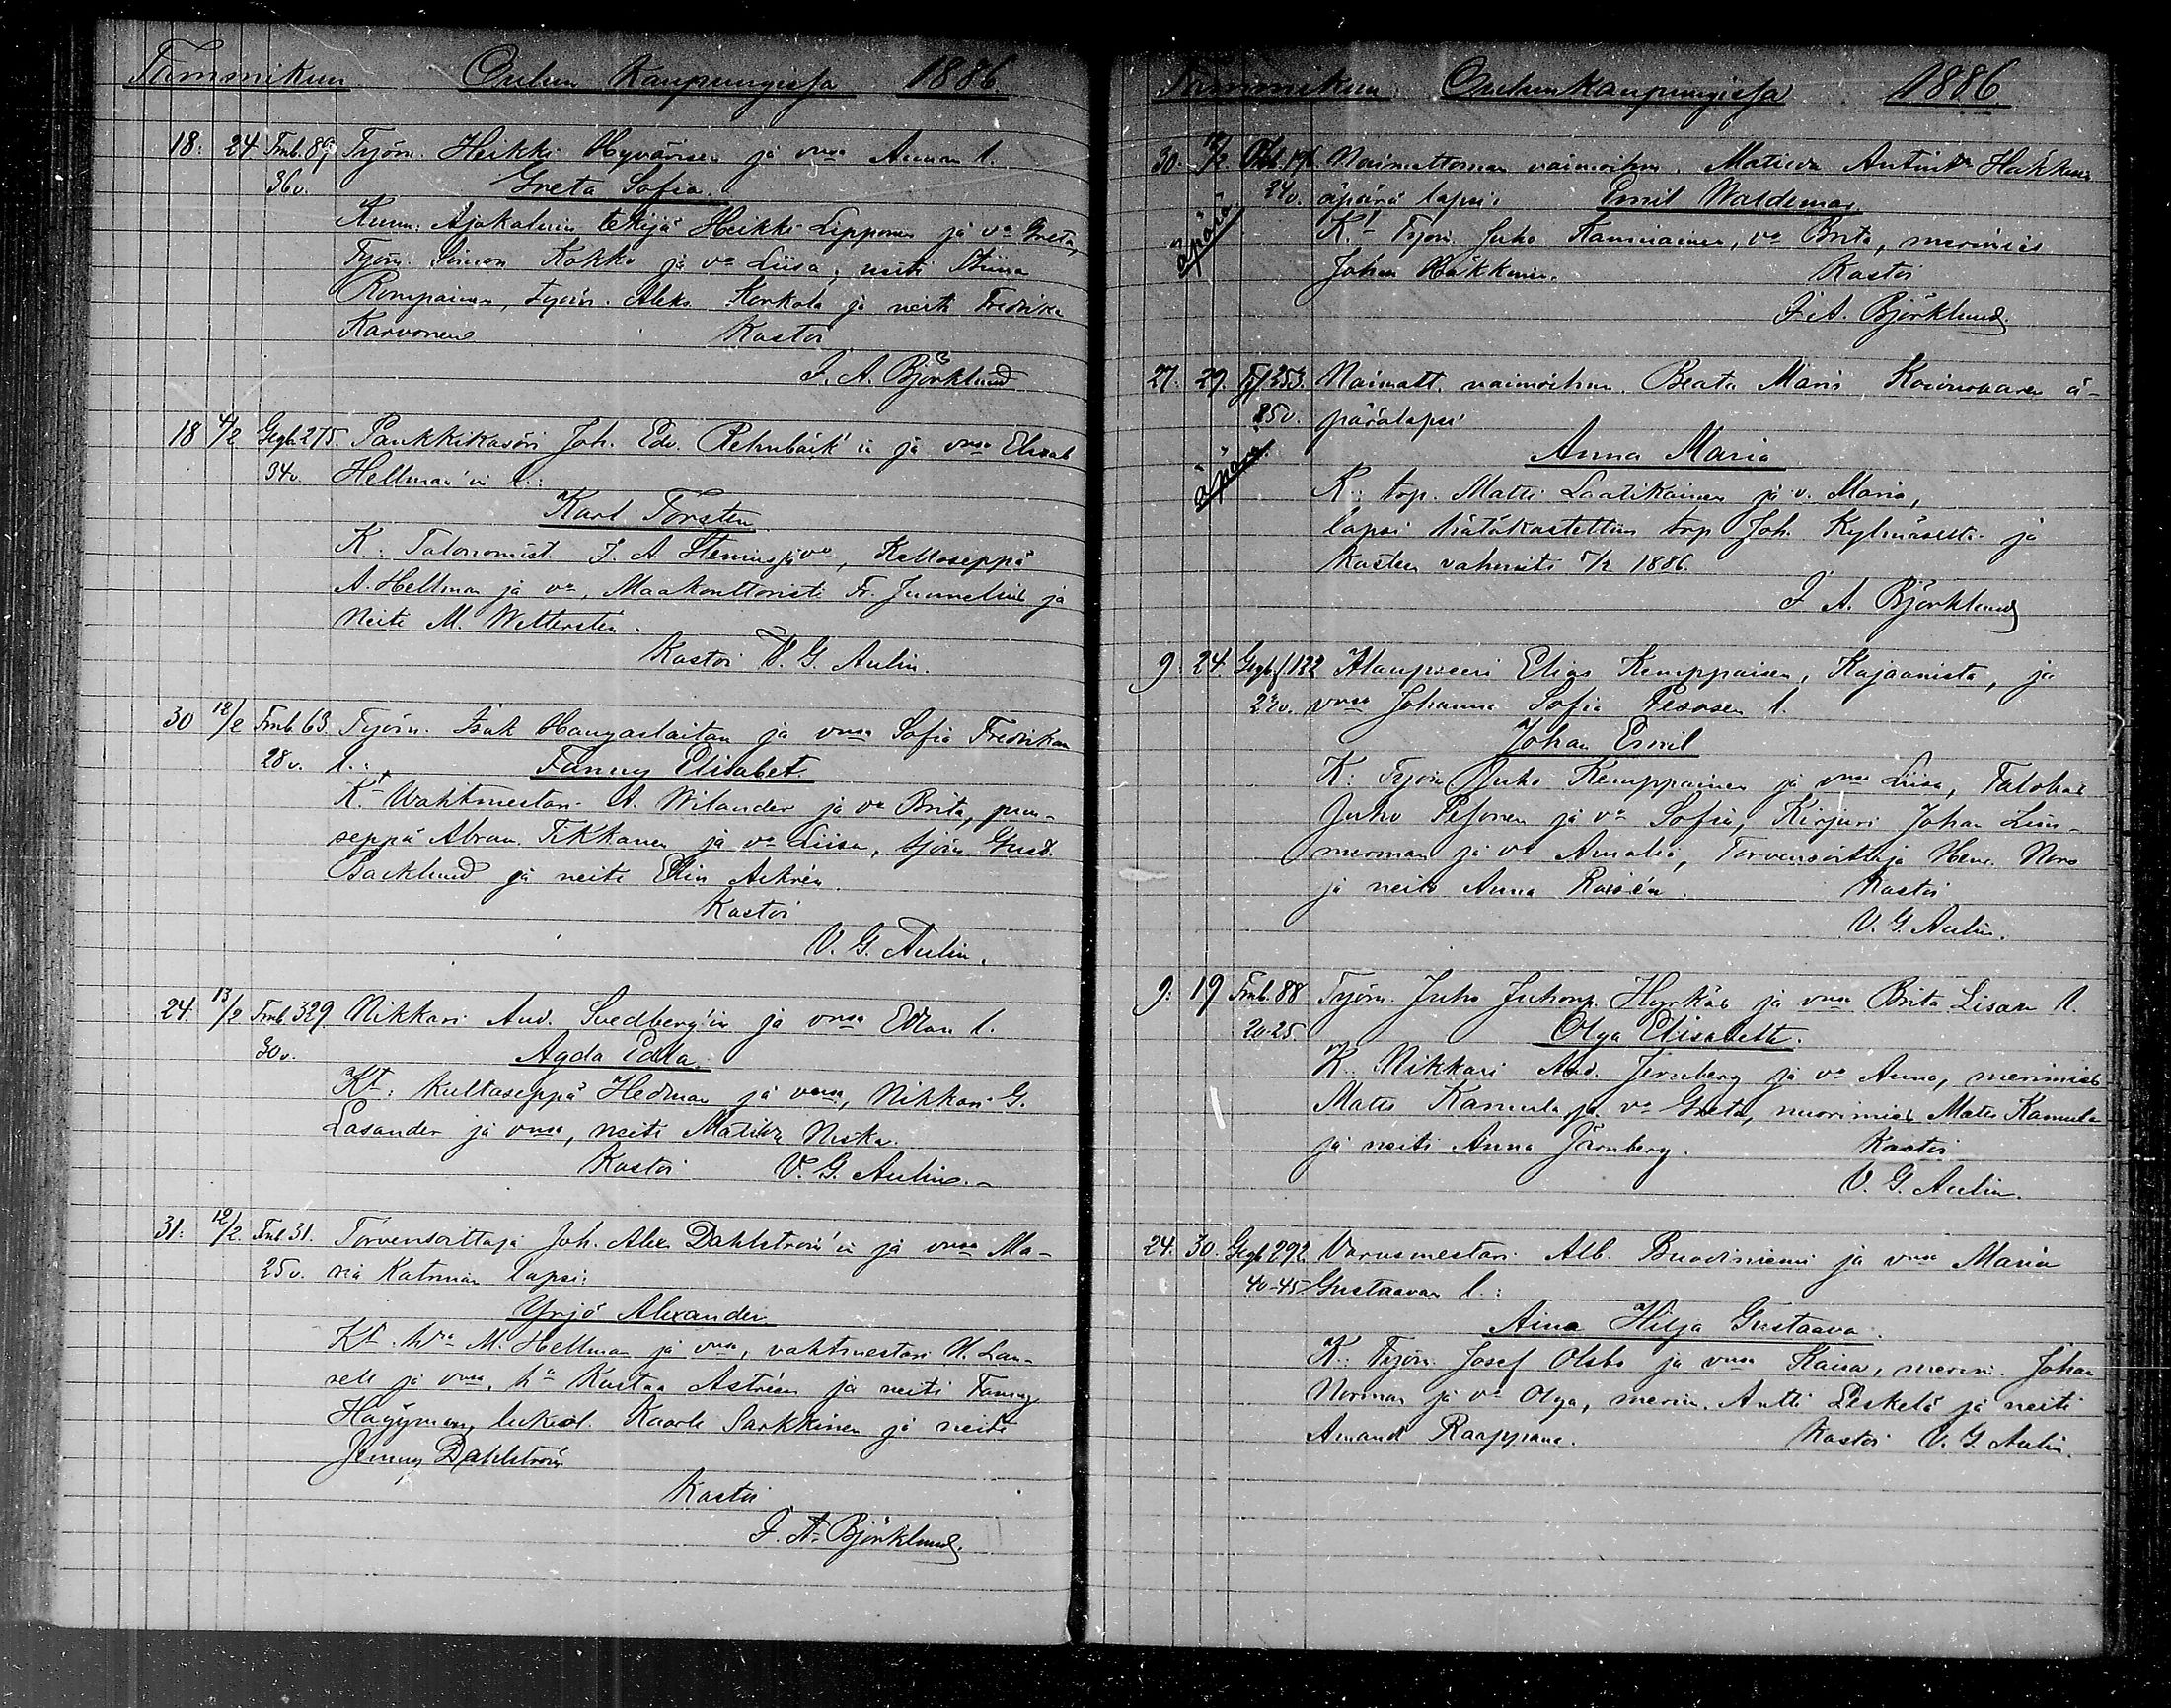 Tammikuu Oulun kaupungissa 1886.
18. 24 Fmb. 89 Työm. Heikki Hyvärisen ja vmsa Annan l.
36 v. Greta Sofia.
Kumm. Ajokaluin tekijä Heikki Lipponen ja va Greta,
Työm. Simon Kokko ja va Liisa, neiti Stiina
Rompainen, työm. Aleks. Korkala ja neiti Fredrika
Karvonen Kastoi
J. A. Björklund
18 4/2 Gegb. 275. Pankkikasöri Joh. Edv. Rehnbäck'in ja vmsa Elisab
34 v. Hellman'in l.:
Karl Torsten
K: Talonomist. J. A. Stenius ja va, Kelloseppä
A. Hellman ja va, Maakonttoristi Fr. Jumelius ja
Neiti M. Wettersten.
Kastoi V. G. Aulin.
30 12/2 Fmb. 63 Työm. Isak Hangaslaitan ja vmsa Sofia Fredrikan
28 v. l.: Fanny Elisabet.
Kt Wahtmestari A. Wilander ja va Brita, puu-
seppä Abram Tikkanen ja va Liisa, työm Gust.
Backlund ja neiti Elin Askrén.
Kastoi
V. G. Aulin.
24. 13/2 Fmb. 329. Nikkari And. Svedberg'in ja vmsa Edlan l.
30 v. Agda Edla.
Kt: Kultaseppä Hedman ja vmsa, Nikkari G.
Lasander ja vmsa, neiti Matilda Niska.
Kastoi V. G. Aulin.
31. 12/2. Fmb. 31. Torvensoittaja Joh. Alex. Dahlström'in ja vmsa Ma-
25 v. ria Katrinan lapsi:
Yrjö Alexander
Kt. M. Hellman ja vmsa, vahtmestari
ja vmsa, Kustaa Astréen ja neiti Fanny
Häggman, Kaarle Sarkkinen ja neiti
Jenny Dahlström
Kastoi
J. A. Björklund.
Tammikuu Oulun kaupungissa 1886.
30. 12/2 Naimattoman vaimoihm. Matilda Antint. Häkkin
24 v. äpärä lapsi: Emil Waldemar
äpärä Kt Työm. Juho Kaminainen, va Brita, merimies
Johan Häkkinen. Kastoi
J. A. Björklund.
27. 29. 353. Naimatt. vaimoihm. Beata Maria Koivuvaaran ä-
25 v. pärälapsi
äpärä. Anna Maria
K: trp. Matti Laatikainen ja v. Maria,
lapsi hätäkastettiin trp Joh. Kylmäseltä ja
kasteen vahvisti 7/2 1886
J. A. Björklund
9. 24. Gegb. f. 182 Kauppieri Elias Kemppaisen, Kajaanista, ja
vmsa Johanna Sofia Pesosen l.
Johan Emil
K: Työm Juho Kemppainen ja vmsa Liisa, Talokas
Juho Pesonen ja va Sofia, Kirjuri Johan Lim-
merman ja va Amalia, Torvensoittaja Henr. Noro
ja neiti Anna Roisén. Kastoi
V. G. Aulin.
9. 19 Fmb. 88 Työm. Juho Juhonp. Hyrkäs ja vmsa Brita Lisan l.
20-25. Olga Elisabeth.
K. Nikkari And. Jernberg ja va Anna, merimies
Matts Kamula ja va Greta, nuorimies Matts Kamula
ja neiti Anna Järnberg. Kastoi
V. G. Aulin.
24. 30. Gegb 292 Varusmestari Alb. Buodiniemi ja vmsa Maria
40-45 Gustaavan l.:
Aina Hilja Gustaava.
K.: Työm. Josef Olsbo ja vmsa Kaisa, merim. Johan
Norman ja va Olga, merim. Antti Leskelä ja neiti
Amanda Raappana. Kastoi V. G. Aulin.